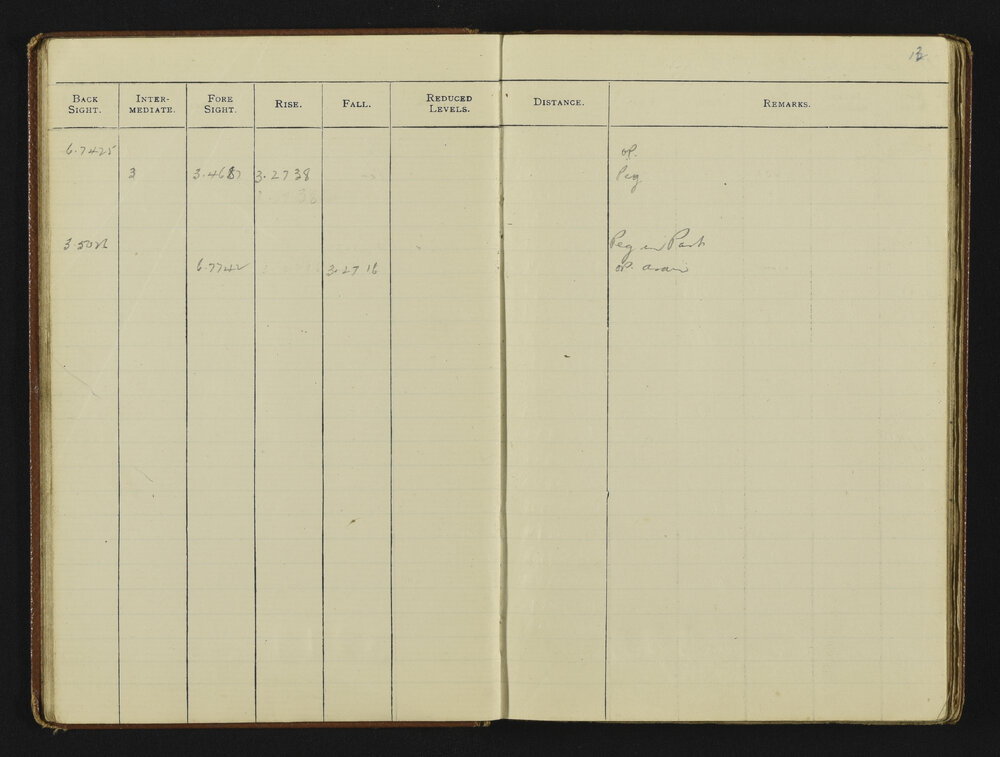 13
BACK SIGHT. INTER-MEDIATE. FORE SIGHT. RISE. FALL. REDUCED LEVELS. DISTANCE. REMARKS.
6.7425 OP.
3 3.4687 3.2738 Peg
3.5026 Peg in
6.7742 3.2716 OP.